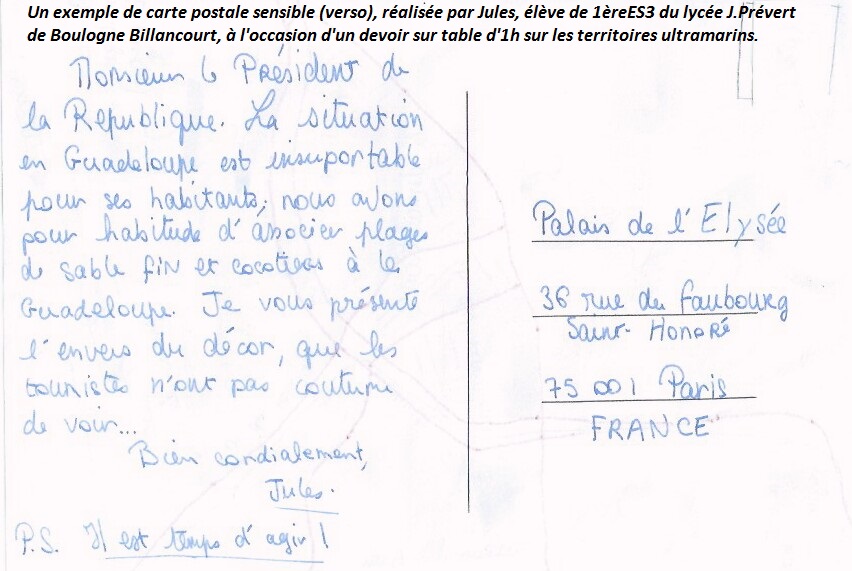 Un exemple de carte postale sensible (verso), réalisée par Jules, élève de 1èreES3 du lycée J.Prévert
de Boulogne Billancourt, à l'occasion d'un devoir sur table d'1h sur les territoires ultramarins.
Monsieur le Président de
la Republique. La situation
en Guadeloupe est insuportable
pour ses habitants; nous avons
pour habitude d'associer plages
de sable fin et cocotiers à la
Guadeloupe. Je vous présente
l'envers du décor, que les
touristes n'ont pas coutume
de voir...
Bien cordialement,
Jules.
P.S. Il est temps d'agir !
Palais de l'Elysée
36 rue du faubourg
Saint-Honoré
75 001 Paris
FRANCE